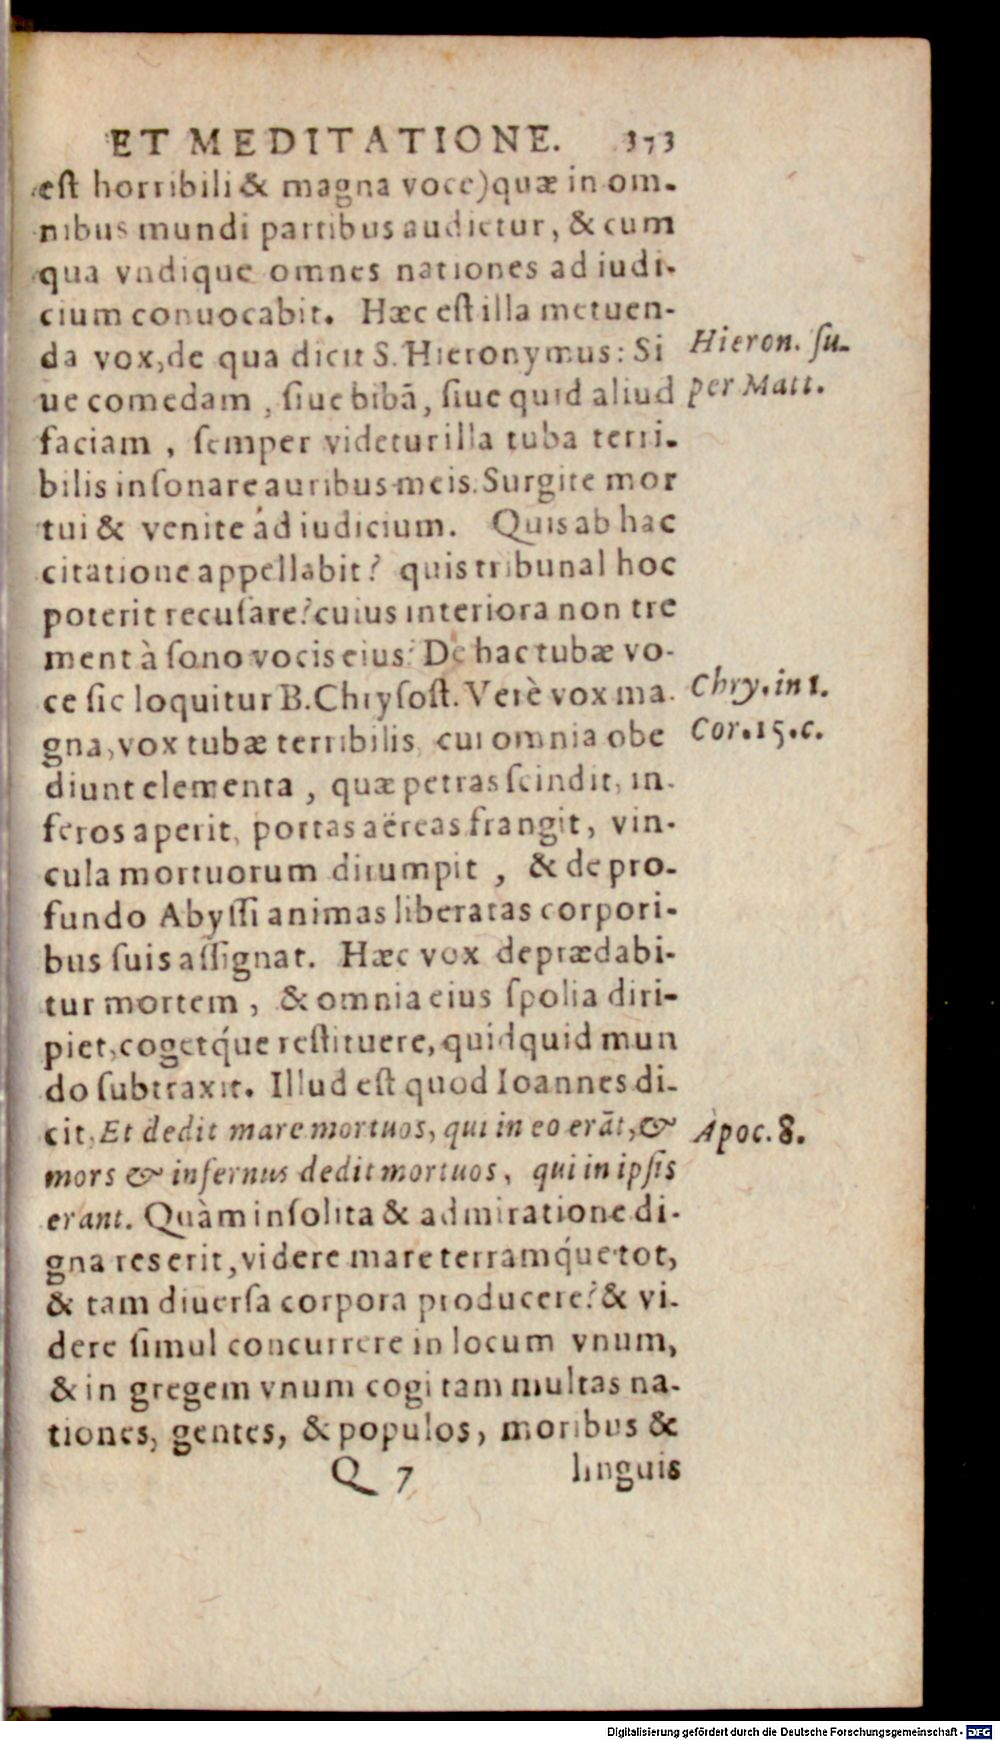 ET MEDITATIONE. 373
est horribili & magna voce)quæ in om-
nibus mundi partibus audietur, & cum
qua vndique omnes nationes ad iudi-
cium conuocabit. Hæc est illa metuen-
da vox, de qua dicit S. Hieronymus: Si
Hieron. su-
ue comedam, siue bibā, siue quid aliud
per Matt.
faciam, semper videtur illa tuba terri-
bilis insonare auribus meis. Surgite mor
tui & venite ad iudicium. Quis ab hac
citatione appellabit? quis tribunal hoc
poterit recusare? cuius interiora non tre
ment à sono vocis eius? De hac tubæ vo-
ce sic loquitur B. Chrysost. Verè vox ma-
Chry. in 1.
gna, vox tubæ terribilis, cui omnia obe
Cor. 15. c.
diunt elementa, quæ petras scindit, in-
feros aperit, portas aëreas frangit, vin-
cula mortuorum dirumpit, & de pro-
fundo Abyssi animas liberatas corpori-
bus suis assignat. Hæc vox deprædabi-
tur mortem, & omnia eius spolia diri-
piet, cogetq́ue restituere, quidquid mun
do subtraxit. Illud est quod Ioannes di-
cit, Et dedit mare mortuos, qui in eo erāt, &
Apoc. 8.
mors & infernus dedit mortuos, qui in ipsis
erant. Quàm insolita & admiratione di-
gna res erit, videre mare terramq́ue tot,
& tam diuersa corpora producere? & vi-
dere simul concurrere in locum vnum,
& in gregem vnum cogi tam multas na-
tiones, gentes, & populos, moribus &
Q 7 linguis
Digitalisierung gefördert durch die Deutsche Forschungsgemeinschaft - DFG